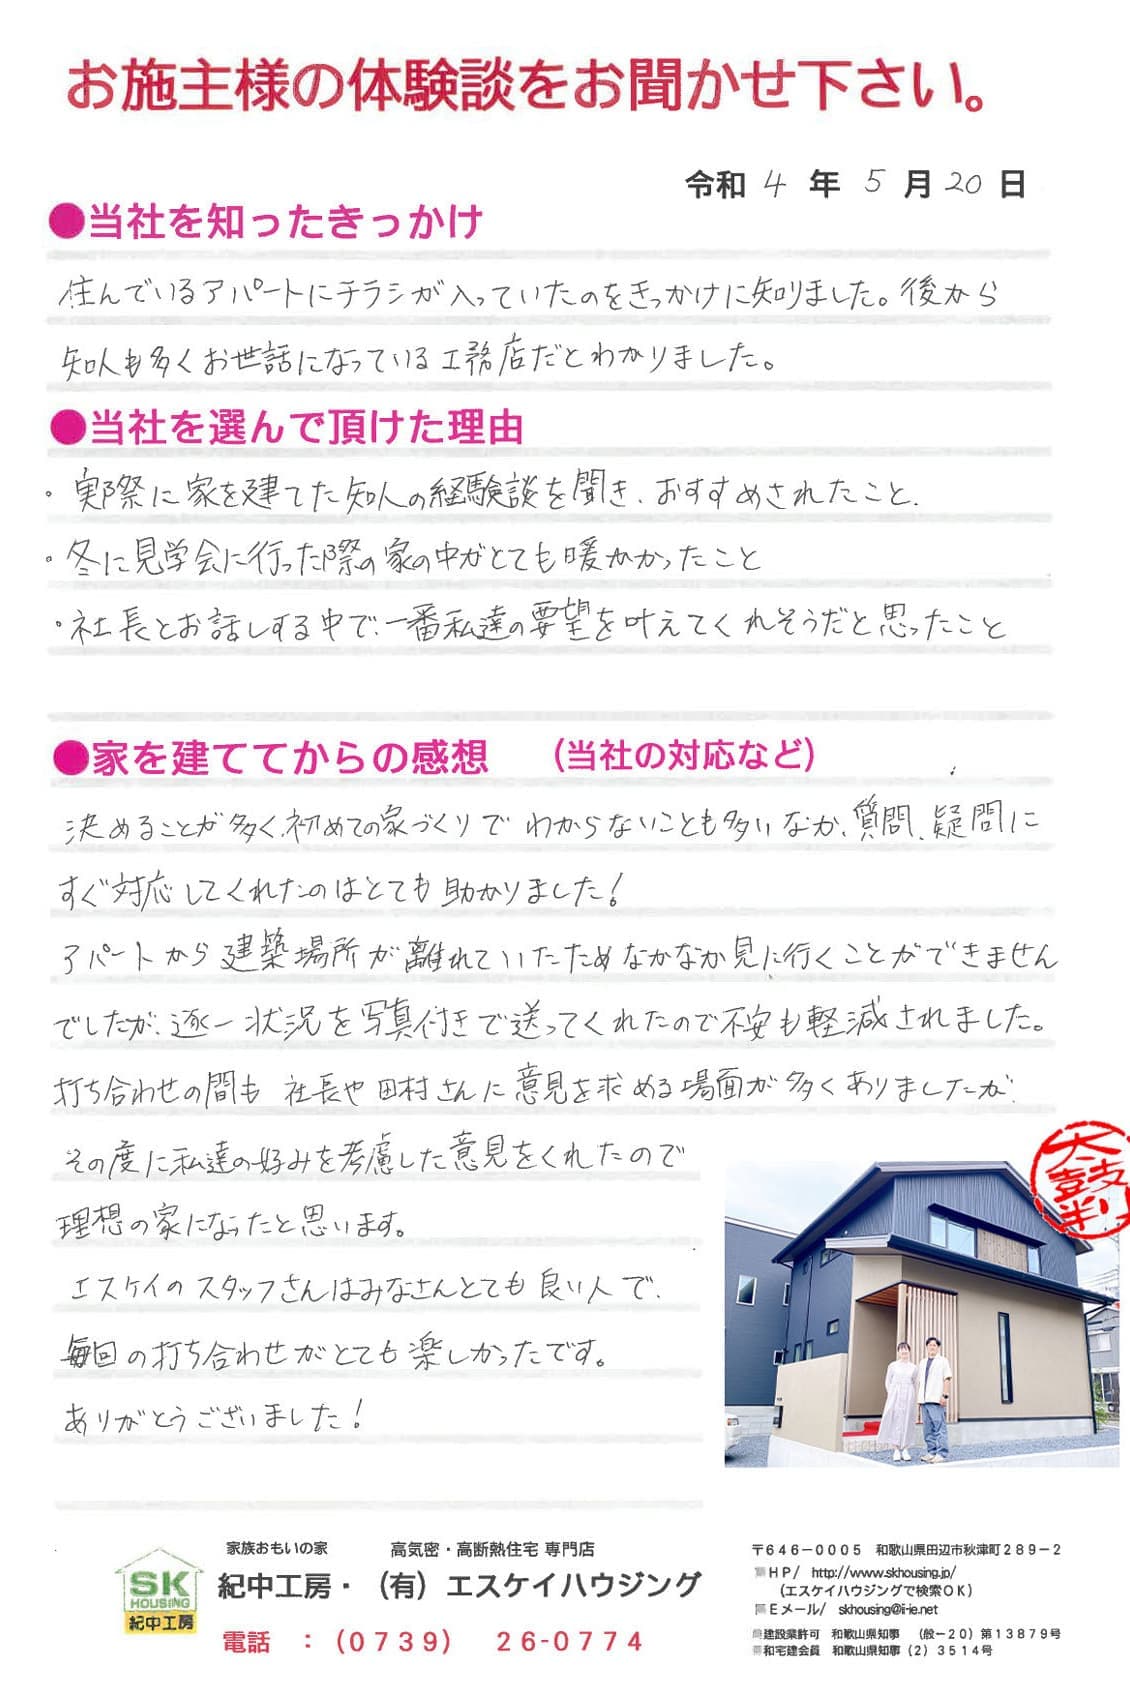 お施主様の体験談をお聞かせ下さい。
令和 4 年 5 月 20 日
●当社を知ったきっかけ
住んでいるアパートにチラシが入っていたのをきっかけに知りました。後から
知人も多くお世話になっている工務店だとわかりました。
●当社を選んで頂けた理由
・実際に家を建てた知人の経験談を聞き、おすすめされたこと、
・冬に見学会に行った際の家の中がとても暖かかったこと
・社長とお話しする中で、一番私達の要望を叶えてくれそうだと思ったこと
●家を建ててからの感想 (当社の対応など)
決めることが多く、初めての家づくりでわからないことも多いなか、質問、疑問に
すぐ対応してくれたのはとても助かりました!
アパートから建築場所が離れていたためなかなか見に行くことができません
でしたが、逐一状況を写真付きで送ってくれたので不安も軽減されました。
打ち合わせの間も 社長や田村さんに意見を求める場面が多くありましたが、
その度に私達の好みを考慮した意見をくれたので
理想の家になったと思います。
エスケイのスタッフさんはみなさんとても良い人で、
毎回の打ち合わせがとても楽しかったです。
ありがとうございました!
太鼓判
家族おもいの家 高気密・高断熱住宅 専門店
SK
HOUSING
紀中工房
紀中工房・(有)エスケイハウジング
電話 :(0739) 26-0774
〒646-0005 和歌山県田辺市秋津町289-2
HP/ http://www.skhousing.jp/
(エスケイハウジングで検索OK)
Eメール/ skhousing@i-ie.net
建設業許可 和歌山県知事 (般-20)第13879号
和宅建会員 和歌山県知事(2)3514号